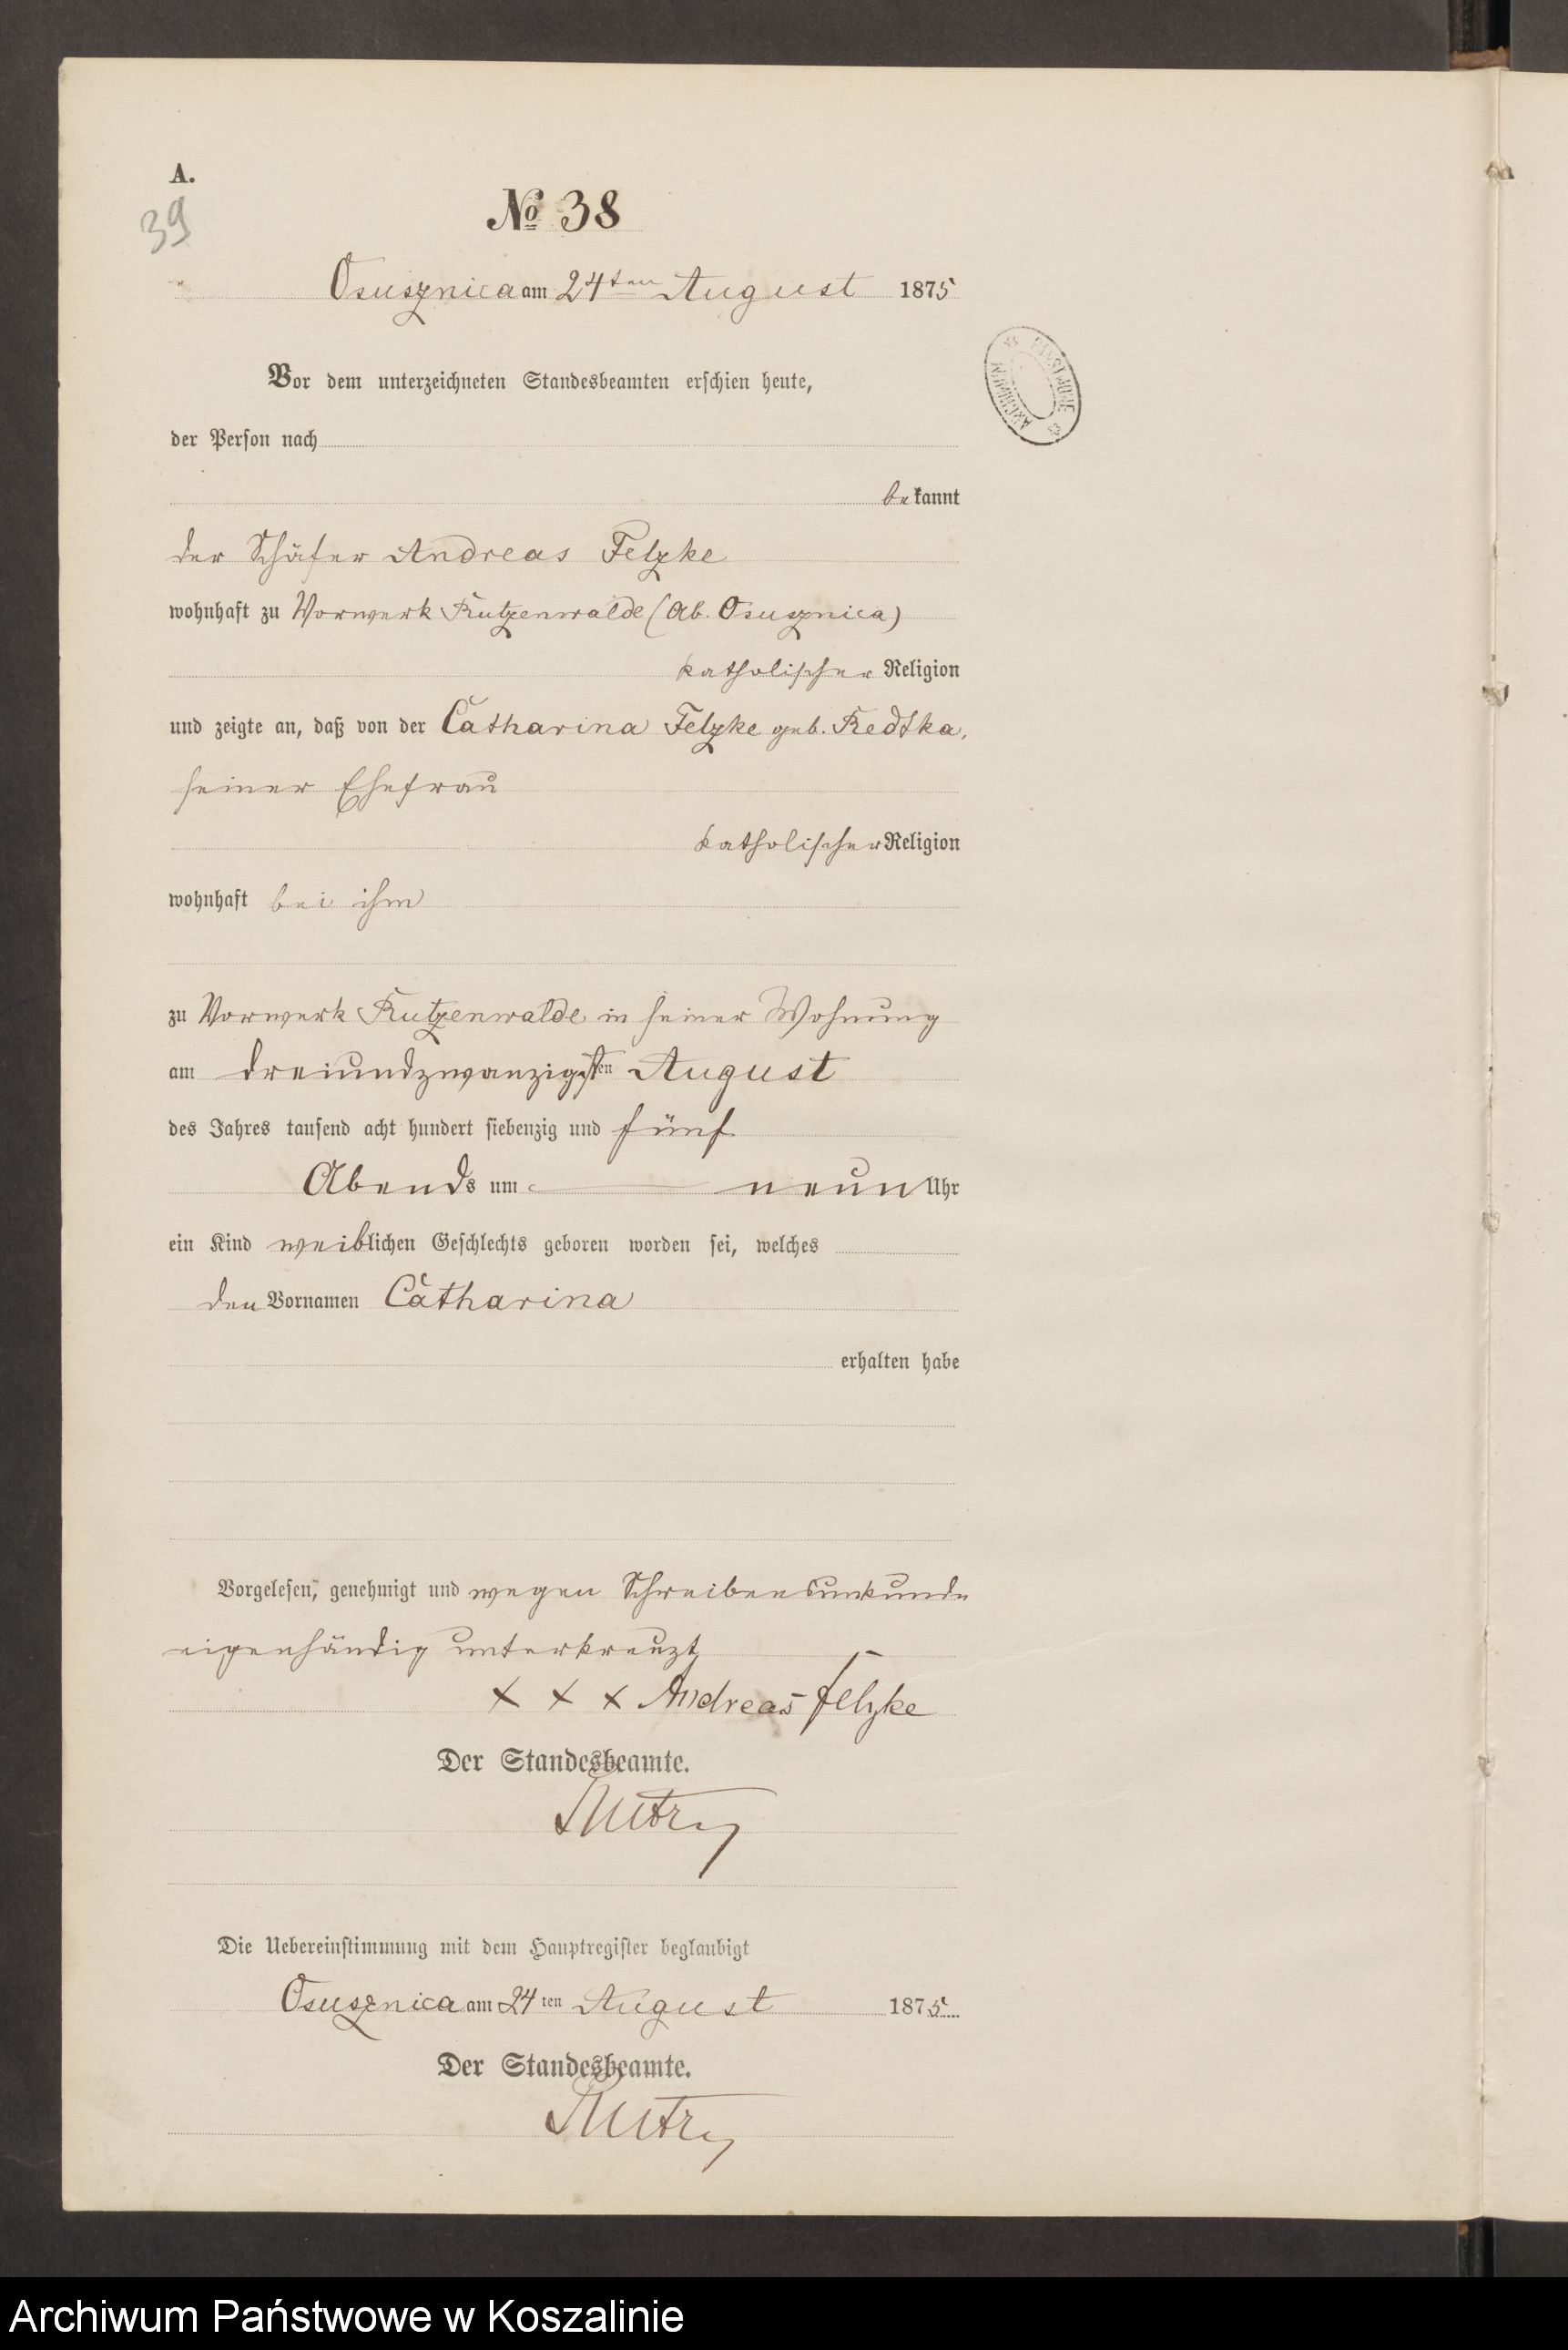 A.
39
No 38
Osusznica am 24ten August 1875
Vor dem unterzeichneten Standesbeamten erschien heute,
der Person nach
bekannt
der Schäfer Andreas Felzke
wohnhaft zu Vorwerk Kutzenwalde (Ab. Osusznica)
katholischer Religion
und zeigte an, daß von der Catharina Felzke geb. Redtka,
seiner Ehefrau
katholischer Religion
wohnhaft bei ihm
zu Vorwerk Kutzenwalde in seiner Wohnung
am dreiundzwanzigsten August
des Jahres tausend acht hundert siebenzig und fünf
Abends um neun Uhr
ein Kind weiblichen Geschlechts geboren worden sei, welches
den Vornamen Catharina
erhalten habe
Vorgelesen, genehmigt und wegen Schreibensunkunde
eigenhändig unterkreuzt
x x x Andreas Felzke
Der Standesbeamte.
Die Uebereinstimmung mit dem Hauptregister beglaubigt
Osusznica am 24ten August 1875
Der Standesbeamte.
Archiwum Państwowe w Koszalinie